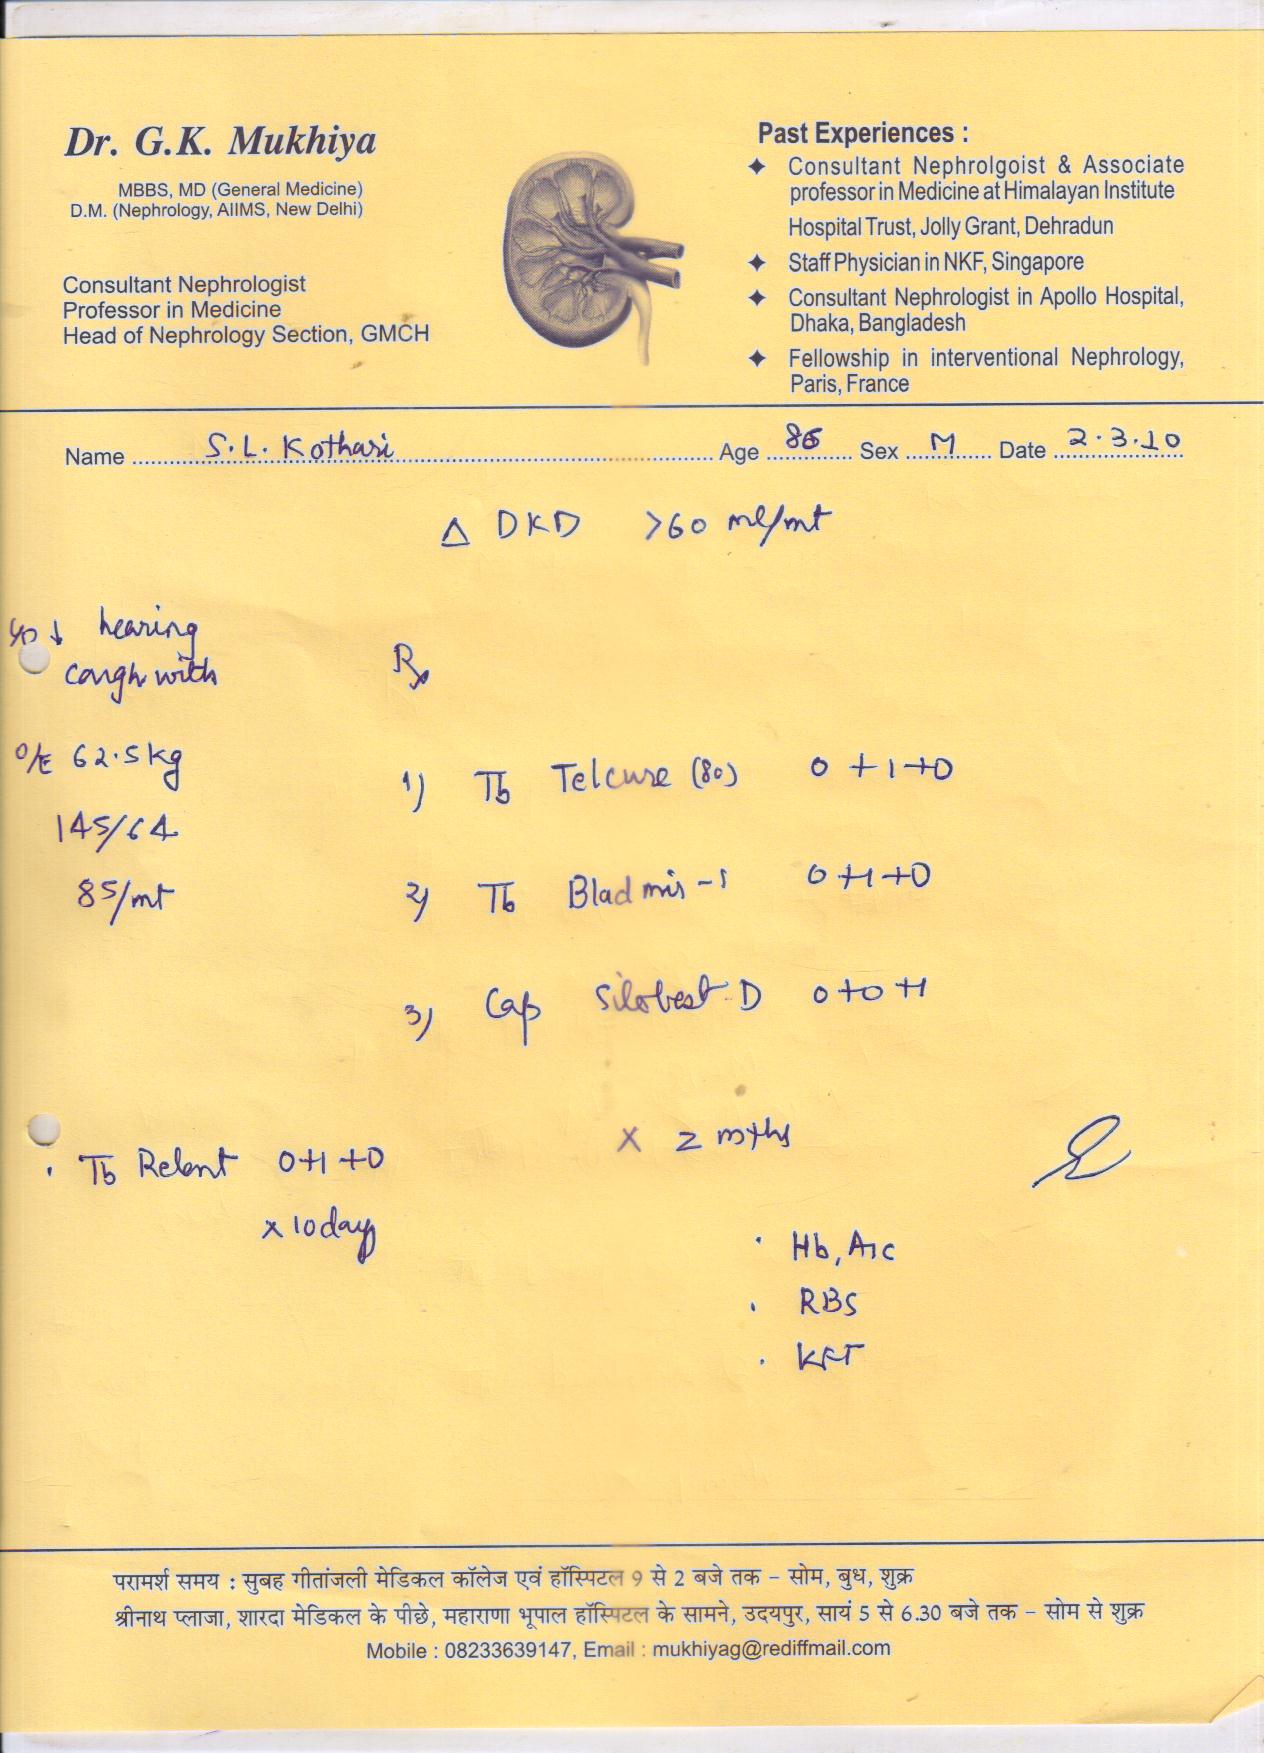 Dr. G.K. Mukhiya
MBBS, MD (General Medicine)
D.M. (Nephrology, AIIMS, New Delhi)
Consultant Nephrologist
Professor in Medicine
Head of Nephrology Section, GMCH
Past Experiences :
✦ Consultant Nephrolgoist & Associate
professor in Medicine at Himalayan Institute
Hospital Trust, Jolly Grant, Dehradun
✦ Staff Physician in NKF, Singapore
✦ Consultant Nephrologist in Apollo Hospital,
Dhaka, Bangladesh
✦ Fellowship in interventional Nephrology,
Paris, France
Name S.L. Kothari Age Sex M Date 2.3.10
Δ DKD >60 ml/mt
↓ hearing
cough with
O/E 62.5kg
145/64
85/mt
Rx
1) Tb Telcure (80) 0+1+0
2) Tb Bladmis-1 0+1+0
3) Cap Silobest D 0+0+1
x 2 mths
. Tb Relent 0+1+0
x 10 day
. Hb, A1c
. RBS
. KFT
परामर्श समय : सुबह गीतांजली मेडिकल कॉलेज एवं हॉस्पिटल 9 से 2 बजे तक – सोम, बुध, शुक्र
श्रीनाथ प्लाजा, शारदा मेडिकल के पीछे, महाराणा भूपाल हॉस्पिटल के सामने, उदयपुर, सायं 5 से 6.30 बजे तक – सोम से शुक्र
Mobile : 08233639147, Email : mukhiyag@rediffmail.com